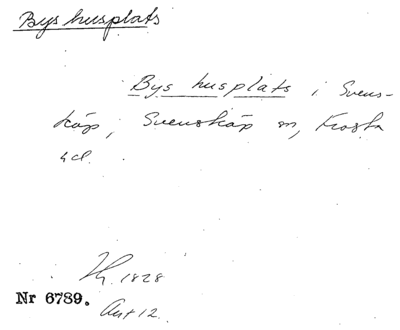 Bys husplats
Bys husplats i Svens-
käp, Svenskäp sn, Frosta
hd.
Th. 1828
Nr 6789.
Art 12.